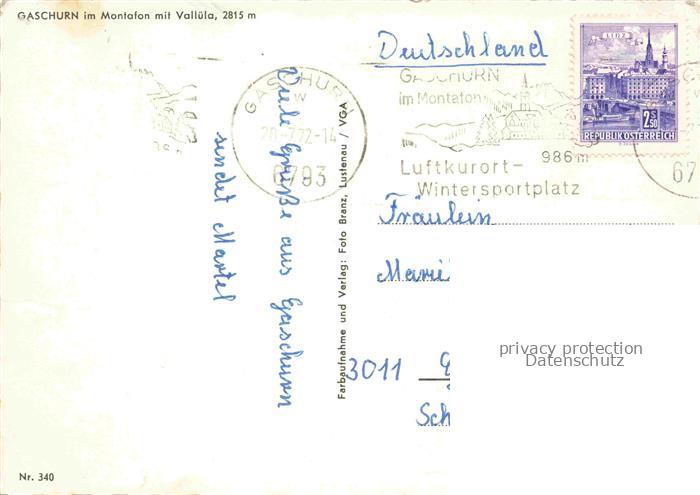 GASCHURN im Montafon mit Vallüla, 2815 m
Deutschland
LINZ
2.50
S
REPUBLIK ÖSTERREICH
GASCHURN
20.-7.72-14
6793
GASCHURN
im Montafon
986m
Luftkurort-
Wintersportplatz
67
Viele Grüße aus Gaschurn
sendet Martel
Farbaufnahme und Verlag: Foto Branz, Lustenau / VGA
Fräulein
Marie
3011
Sch
privacy protection
Datenschutz
Nr. 340